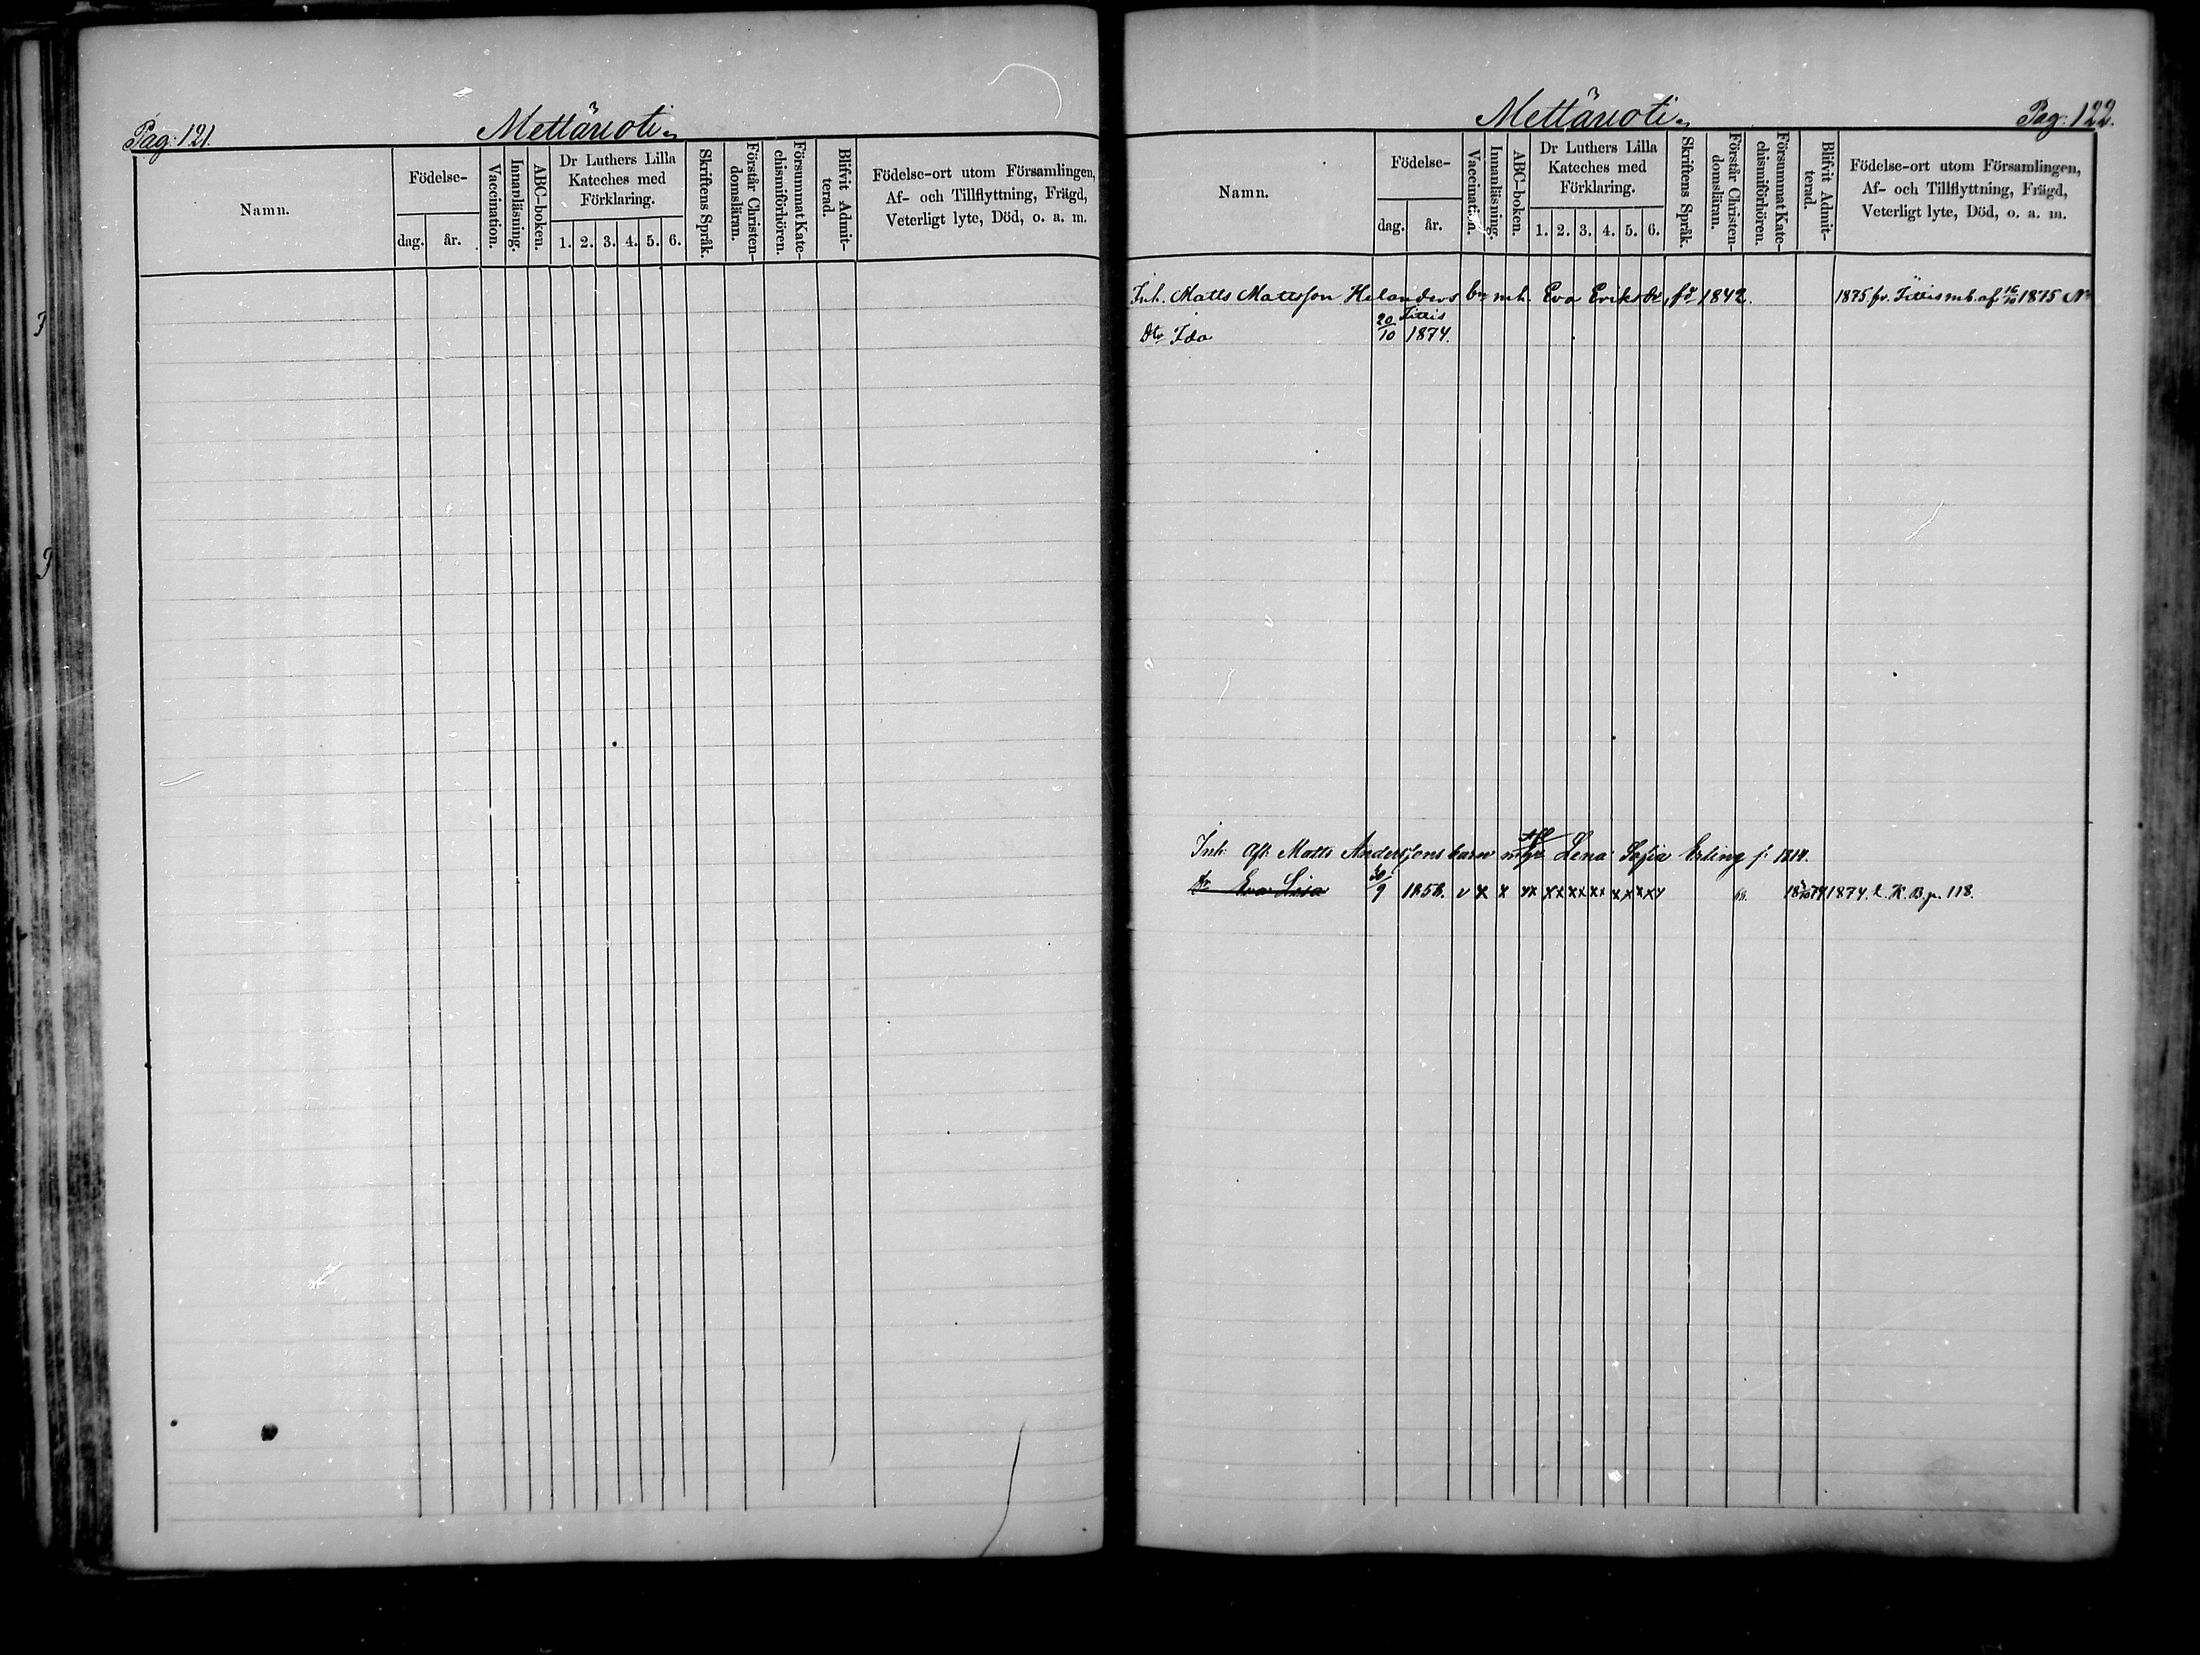 Pag. 121.
Mettäuoti.
Namn.
Födelse-
dag. år.
Vaccination.
Innanläsning.
ABC-boken.
Dr Luthers Lilla
Kateches med
Förklaring.
1. 2. 3. 4. 5. 6.
Skriftens Språk.
Förstår Christen-
domsläran.
Försummat Kate-
chismiförhören.
Blifvit Admit-
terad.
Födelse-ort utom Församlingen,
Af- och Tillflyttning, Frägd,
Veterligt lyte, Död, o. a. m.
Mettäuoti.
Pag. 122.
Namn.
Födelse-
dag. år.
Vaccination.
Innanläsning.
ABC-boken.
Dr Luthers Lilla
Kateches med
Förklaring.
1. 2. 3. 4. 5. 6.
Skriftens Språk.
Förstår Christen-
domsläran.
Försummat Kate-
chismiförhören.
Blifvit Admit-
terad.
Födelse-ort utom Församlingen,
Af- och Tillflyttning, Frägd,
Veterligt lyte, Död, o. a. m.
Inh. Matts Mattsson Helanders bn m h. Eva Eriksdr, fd 1842. 1875 fr. Tittis mb. af 16/10 1875 No
Tittis
Dtr Ida 20/10 1874.
Inh. Afl. Matts Anderssons barn Lena Sofia Erling f. 1814.
Dr Eva Lisa 30/9 1858. v x x xx xx xx xx xx xx 1874. l. K. B. p. 118.